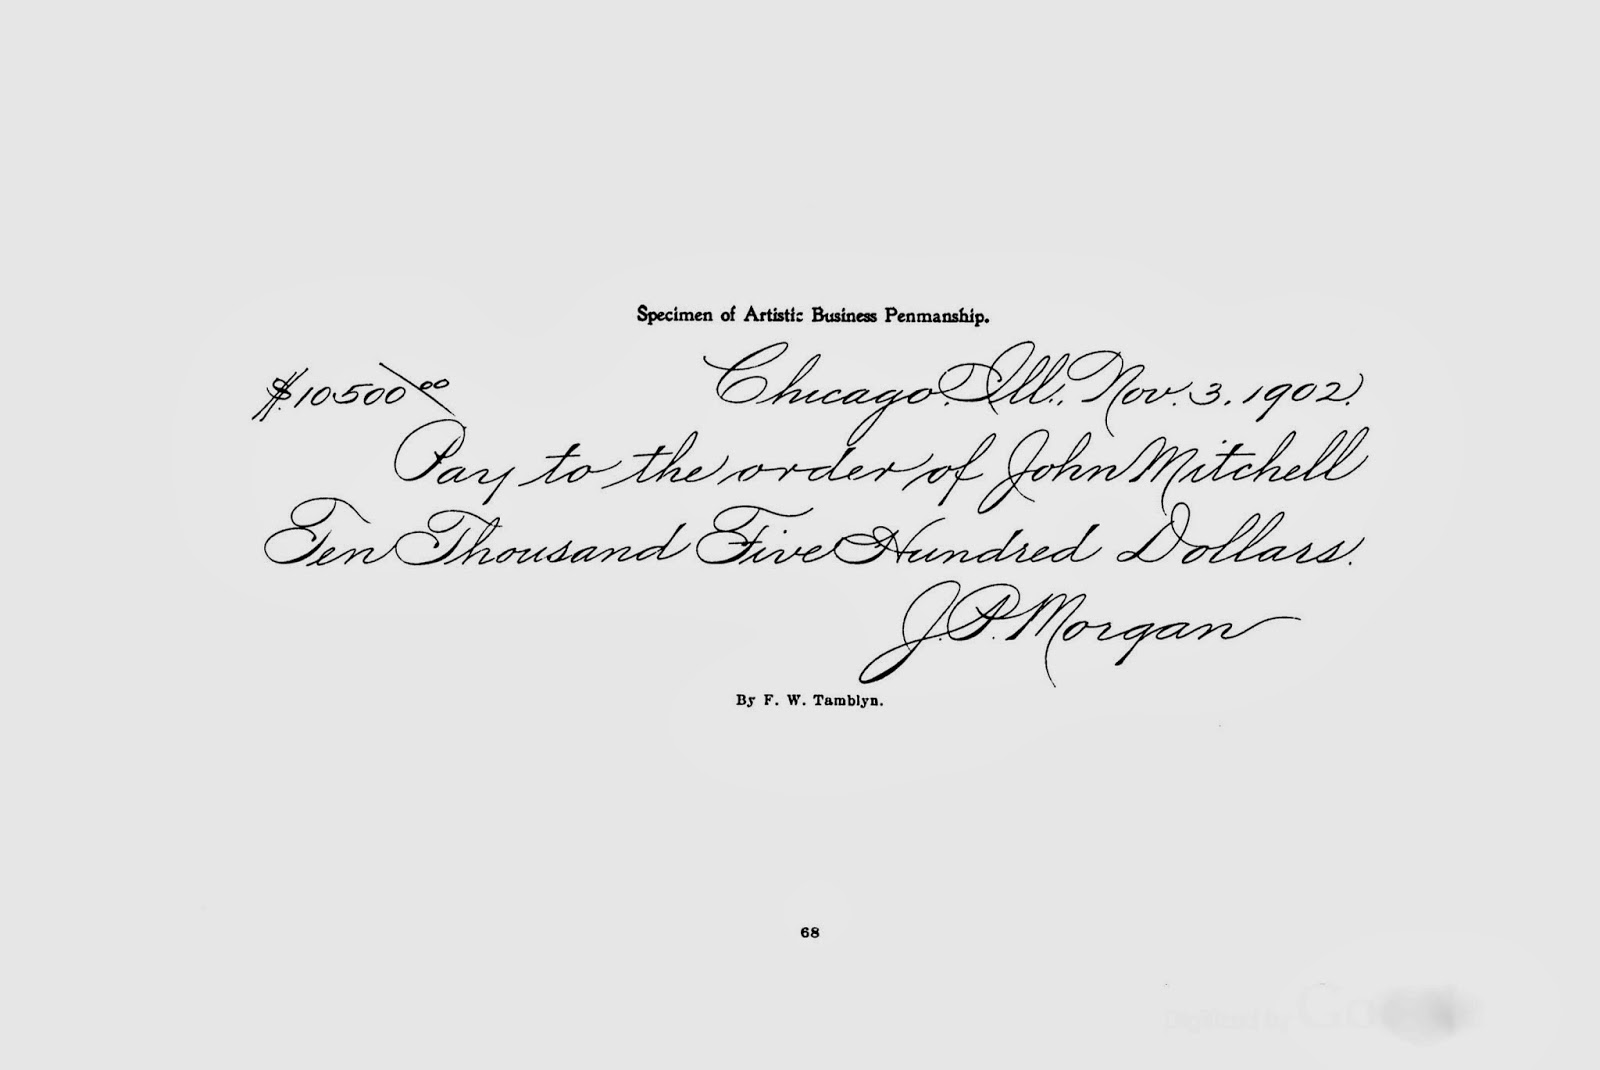 Specimen of Artistic Business Penmanship.
$10500 00 Chicago. Ill., Nov. 3. 1902.
Pay to the order of John Mitchell
Ten Thousand Five Hundred Dollars.
J. P. Morgan
By F. W. Tamblyn.
68
Digitized by